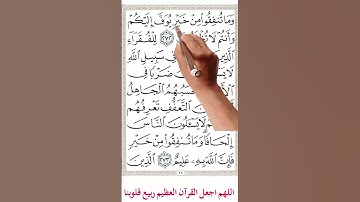 وَمَا تُنفِقُوا مِنْ خَيْرٍ يُوَفَّ إِلَيْكُمْ
وَأَنتُمْ لَا ٢٧٢ لِلْفُقَرَاءِ
الَّذِينَ فِي سَبِيلِ اللَّهِ
لَا ضَرْبًا فِي
الْجَاهِلُ
التَّعَفُّفِ تَعْرِفُهُم
لَا يَسْـَٔلُونَ النَّاسَ
إِلْحَافًا وَمَا تُنفِقُوا مِنْ خَيْرٍ
فَإِنَّ اللَّهَ بِهِ عَلِيمٌ ٢٧٣ الَّذِينَ
اللهم اجعل القرآن العظيم ربيع قلوبنا